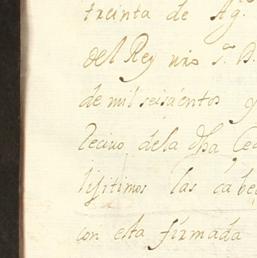 treinta de Ag.
del Rey nro S. D.
de mil seiscientos y
Recivo dela dha Ce
lijitimos las cabe
con esta firmada